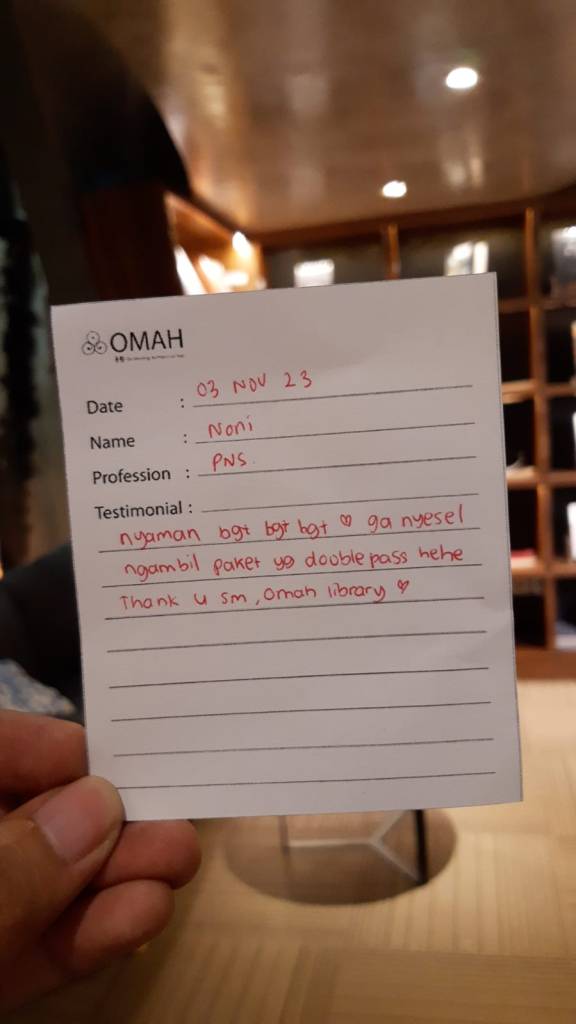 OMAH
Date : 03 NOV 23
Name : Noni
Profession : PNS.
Testimonial :
nyaman bgt bgt bgt ♡ ga nyesel
ngambil paket yg double pass hehe
Thank u sm, Omah library ♡